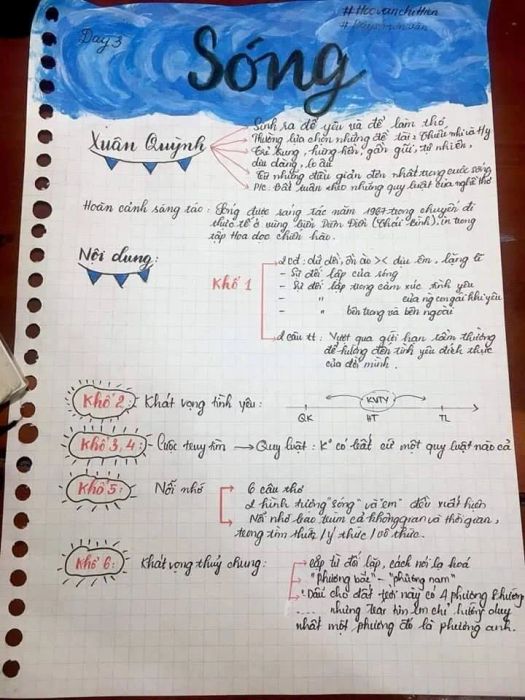 #Hocvanchithan
Day 3
Sóng
Xuân Quỳnh
Sinh ra để yêu và để làm thơ
Thường lựa chọn những đề tài: Thiếu nhi và ty
Trẻ trung, hồng hồn, gần gũi, tự nhiên,
dịu dàng, lo âu
Từ những điều giản đơn nhất trong cuộc sống
P/c: Bất tuân theo những quy luật của nghệ thơ
Hoàn cảnh sáng tác: Sóng được sáng tác năm 1967 trong chuyến đi
thực tế ở vùng biển Diêm Điền (Thái Bình), in trong
tập Hoa dọc chiến hào.
Nội dung:
Khổ 1
2 cđ: dữ dội, ồn ào >< dịu êm, lặng lẽ
- Sự đối lập của sóng
- Sự đối lập trong cảm xúc tình yêu
- " của ng con gái khi yêu
- " bên trong và bên ngoài
2 câu tt: Vượt qua giới hạn tầm thường
để hướng đến tình yêu đích thực
của đời mình.
Khổ 2: Khát vọng tình yêu:
KVTY
QK HT TL
Khổ 3, 4: Cuộc truy tìm → Quy luật: K° có bất cứ một quy luật nào cả
Khổ 5: Nỗi nhớ
6 câu thơ
2 hình tượng "sóng" và "em" đều xuất hiện
Nỗi nhớ bao trùm cả không gian và thời gian,
trong tiềm thức / ý thức / vô thức.
Khổ 6: Khát vọng thủy chung:
cặp từ đối lập, cách nói lạ hoá
"phương bắc" - "phương nam"
"Dẫu cho đất trời này có 4 phương 8 hướng
.... nhưng trái tim em chỉ hướng duy
nhất một phương đó là phương anh.